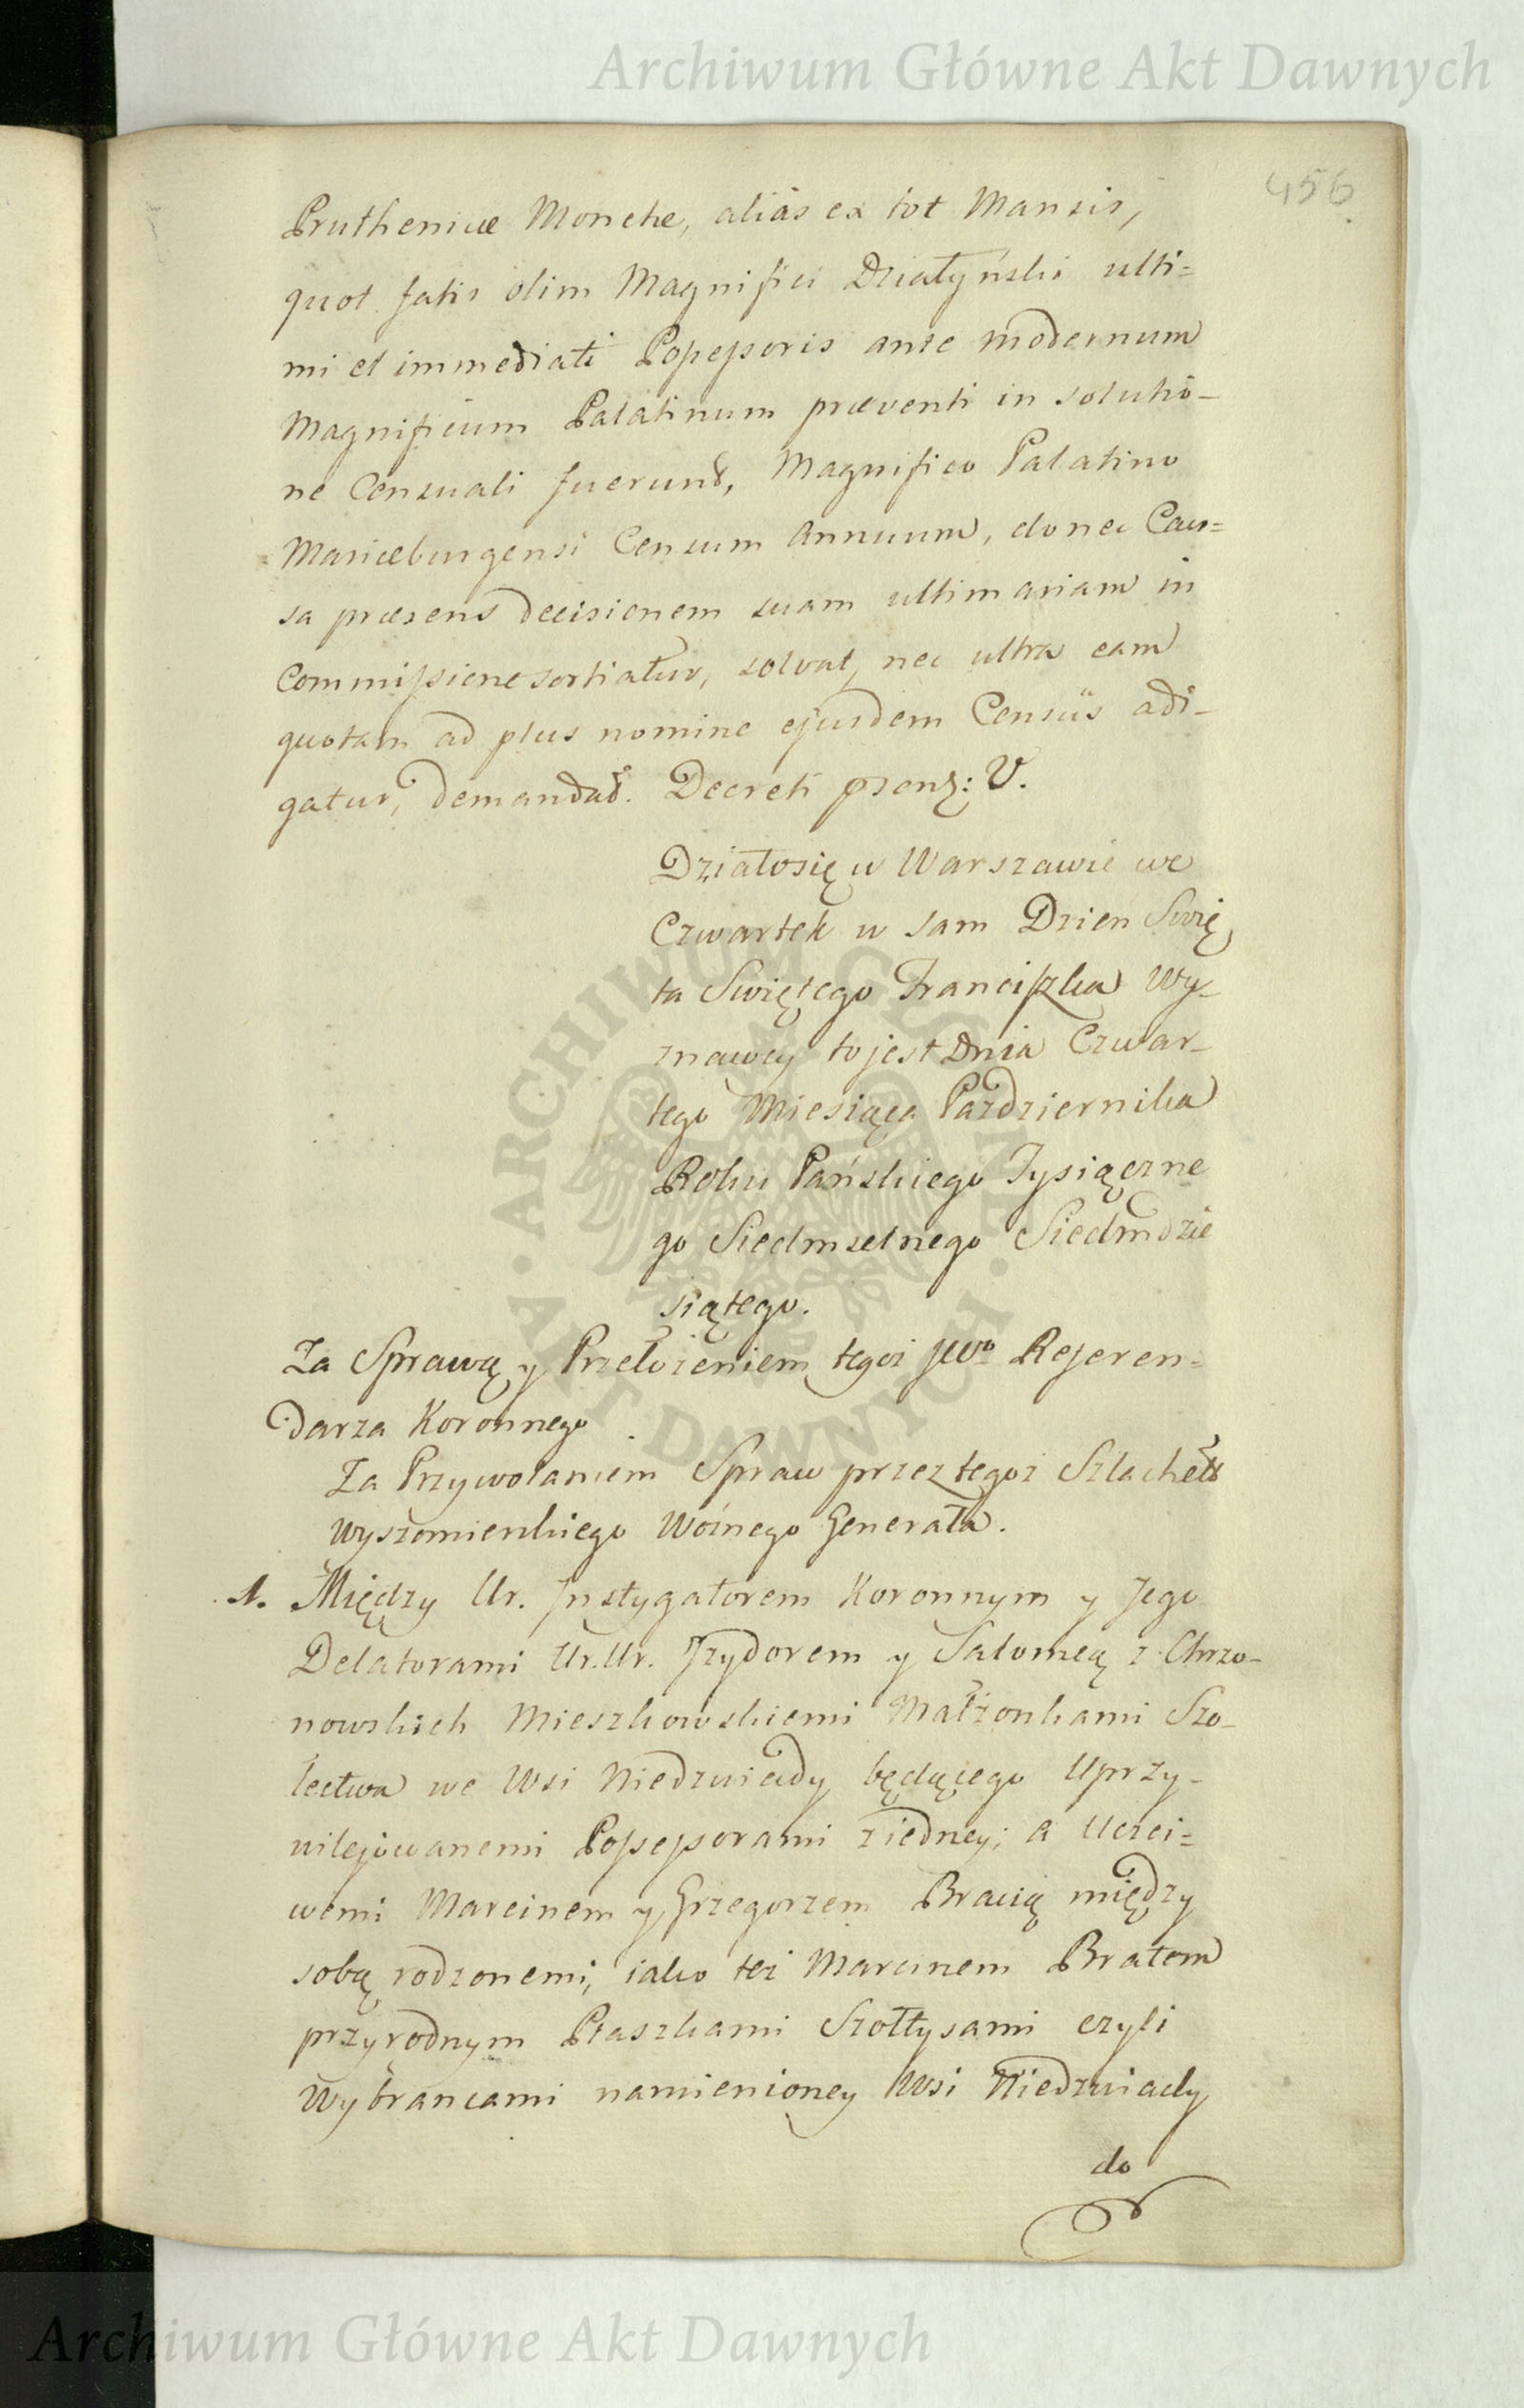 Archiwum Główne Akt Dawnych
456
Pruthenicæ Monetæ, aliàs ex tot Mansis,
quot fatis olim Magnifici Działyński ulti=
mi et immediati Possessoris ante modernum
Magnificum Palatinum præventi in solutio-
ne Censuali fuerund, Magnifico Palatino
Mariæburgensi Censum Annuum, donec Cau=
sa præsens decisionem suam ultimariam in
Commissione sortiatur, solvat, nec ultra eam
quotam ad plus nomine ejusdem Censûs adi-
gatur, demandad. Decreti præns: V.
Działosię w Warszawie we
Czwartek w sam Dzien Swię
ta Swiętego Franciszka Wy-
znawcy to jest Dnia Czwar-
tego Miesiąca Pazdziernika
Roku Pańskiego Tysiączne
go Siedmsetnego Siedmdzie
siątego.
Za Sprawą y Przełożeniem tegoż JWo Referen=
darza Koronnego.
Za Przywołaniem Spraw przez tegoż Szlachett
Wyszomierskiego Woźnego Generała.
1. Między Ur. Instygatorem Koronnym y Jego
Delatorami Ur. Ur. Izydorem y Salomeą z Chrzo-
nowskich Mieszkowskiemi Małżonkami Szo-
lectwa we Wsi Niedzwiady będącego Uprzy-
wilejowanemi Possessorami z iedney; a Uczci=
wemi Marcinem y Grzegorzem Bracią między
sobą rodzonemi, iako też Marcinem Bratem
przyrodnym Ptaszkami Szołtysami czyli
Wybrancami namienioney Wsi Niedzwiady
do
ARCHIWUM GŁÓWNE AKT DAWNYCH
Archiwum Główne Akt Dawnych